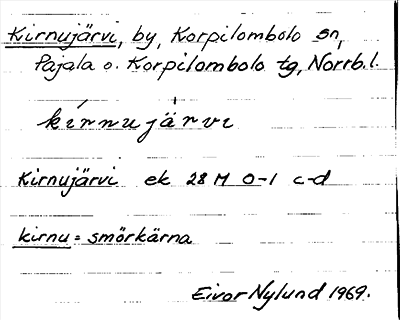 Kirnujärvi, by, Korpilombolo sn,
Pajala o. Korpilombolo tg, Norrb.l.
kirnujärvi
Kirnujärvi ek 28 M 0-1 c-d
kirnu = smörkärna
Eivor Nylund 1969.